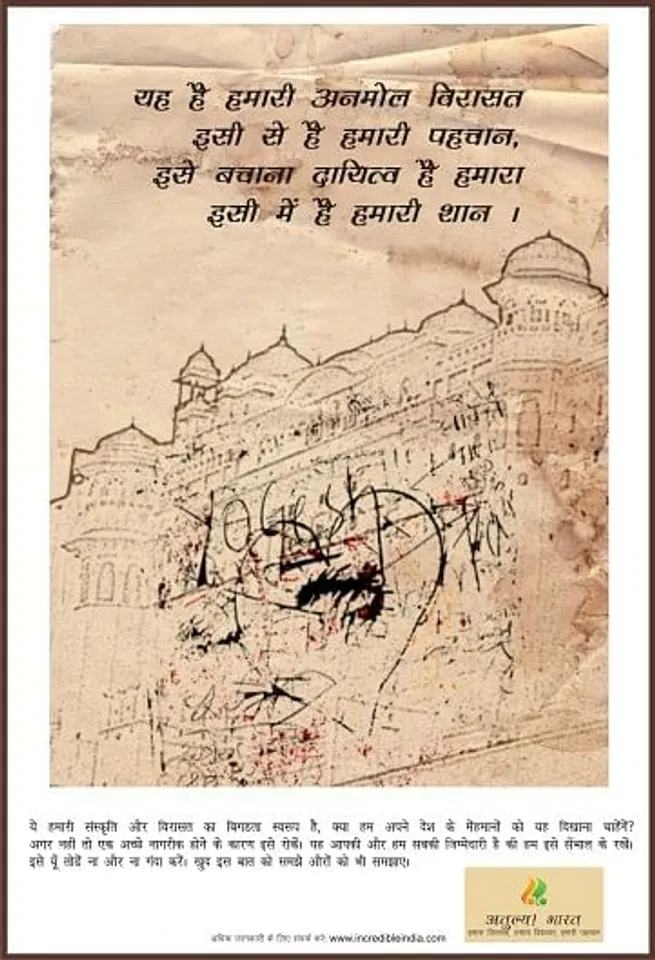 यह है हमारी अनमोल विरासत
इसी से है हमारी पहचान,
इसे बचाना दायित्व है हमारा
इसी में है हमारी शान ।
ये हमारी संस्कृति और विरासत का बिगडता स्वरुप है, क्या हम अपने देश के मेहमानों को यह दिखाना चाहेंगें?
अगर नहीं तो एक अच्छे नागरीक होने के कारण इसे रोकें। यह आपकी और हम सबकी जिम्मेदारी है की हम इसे सँभाल के रखें।
इसे यूँ तोडें ना और ना गंदा करें। खुद इस बात को समझे औरों को भी समझाए।
अतुल्य! भारत
अधिक जानकारी के लिए संपर्क करे: www.incredibleindia.com